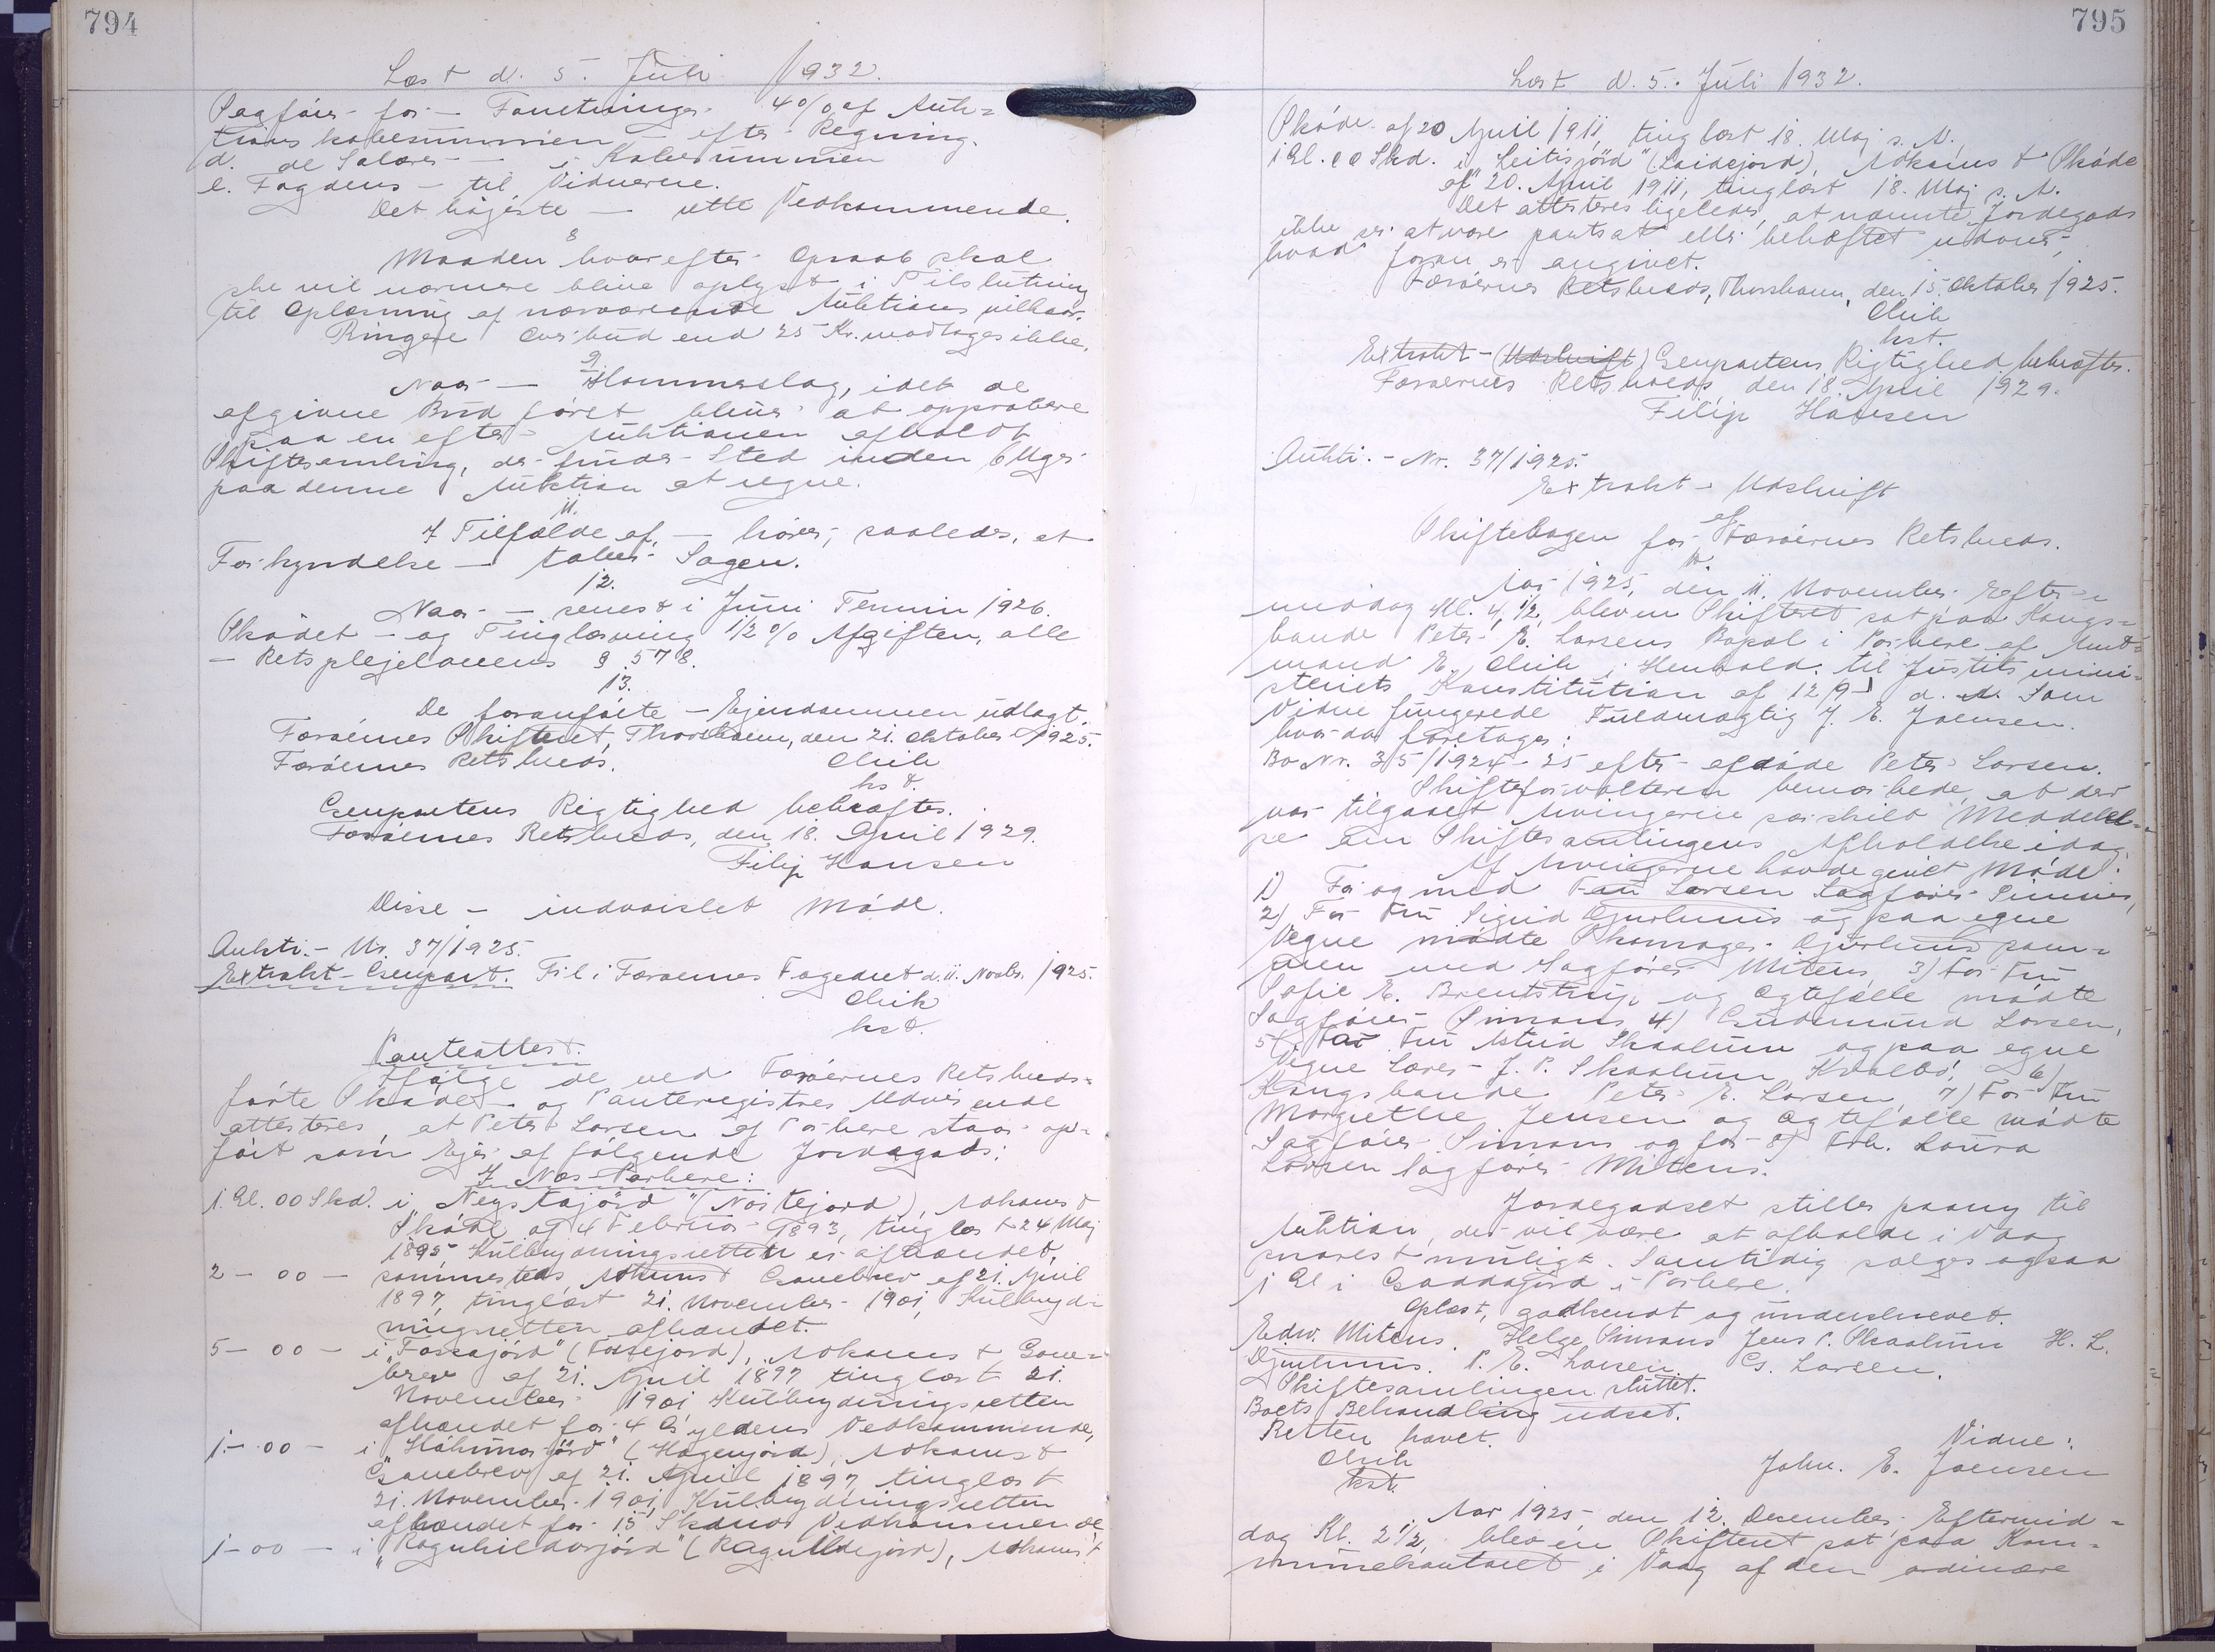 794
Læst d. 5. Juli 1932.
Sagfører for — Fanetninger 4% af Auk=
tionskøbesummen — efter Regning.
d. de Salærer — i Købesummen
e. Fogdens — til Vidnerne.
Det højeste — rette Vedkommende.
8
Maaden hvorefter Opraab skal
ske vil nærmere blive oplyst i Tilslutning
til Oplæsning af nærværende Auktionsvilkaar.
Ringere Overbud end 25 Kr. modtages ikke.
9
Naar — Hammerslag, idet de
afgivne Bud først bliver at approbere
paa en efter Auktionen afholdt
Skiftesamling, der finder Sted inden 6 Uger
fra denne Auktion at regne.
11.
I Tilfælde af, — kræver, saaledes, at
Forkyndelse — taber Sagen.
12.
Naar — senest i Juni Termin 1926.
Skødet — og Tinglæsning 1/2 % Afgiften, alle
— Retsplejelovens § 578.
13.
De foranførte — Ejendommen udlagt.
Færøernes Skifteret, Thorshavn, den 21. Oktober 1925.
Færøernes Retskreds.
kst.
Genpartens Rigtighed bekræftes.
Færøernes Retskreds, den 18. April 1929.
Filip Hansen
Disse — indvarslet Møde.
Aukti.- Nr. 37/1925.
Extrakt-Genpart. Til i Færøernes Fogedret d. 11. Novbr. 1925.
kst.
Panteattest.
Ifølge de ved Færøernes Retskreds=
førte Skøde- og Panteregistres Udvisende
attesteres, at Peter Larsen af Porkere staar op=
ført som Ejer af følgende Jordegods:
I Næs-Porkere:
1 Gl. 00 Skd. i „Neystajörd" (Nøstejord), Adkomst
Skøde af 4 Februar 1893, tinglæst 24 Maj
1895 Kulbrydningsretten er afhændet,
2 - 00 - sammesteds Adkomst Gavebrev af 21. April
1897, tinglæst 21. November 1901, Kulbryd=
ningsretten afhændet.
5 - 00 - i „Fossajörd" (Fossejord), Adkomst Gave=
brev af 21. April 1897 tinglæst 21.
November 1901 Kulbrydningsretten
afhændet for 4 Gyldens Vedkommende,
1 - 00 - i (Hagenjord), Adkomst
Gavebrev af 21. April 1897, tinglæst
21. November 1901, Kulbrydningsretten
afhændet for 15 Skinds Vedkommende,
1 - 00 - i „Ragnhildarjörd" (Ragnhildejord), Adkomst
795
Læst d. 5. Juli 1932.
Skøde af 20 April 1911, tinglæst 18. Maj s. A.
1 Gl. 00 Skd. i „Leitisjörd" (Leidejord), Adkomst Skøde
af 20. April 1911, tinglæst 18. Maj s. A.
Det attesteres ligeledes, at nævnte Jordegods
ikke ses at være pantsat eller behæftet udover,
hvad foran er angivet.
Færøernes Retskreds, Thorshavn, den 15. Oktober 1925.
kst.
Extrakt-(Udskrift) Genpartens Rigtighed bekræftes.
Færøernes Retskreds, den 18. April 1929.
Filip Hansen
Aukti.- Nr. 37/1925.
Extrakt - Udskrift
af
Skiftebogen for Færøernes Retskreds.
Aar 1925, den 11. November Efter=
middag Kl. 4 1/2, blev en Skifteret sat paa Kongs=
bonde Peter E. Larsens Bopæl i Porkere af Amt=
mand E. i Henhold til Justitsmini=
steriets Konstitution af 12/9 d. A. Som
Vidne fungerede Fuldmægtig J. E. Joensen.
hvor da foretages:
Bo Nr. 35/1924-25 efter afdøde Peter Larsen.
Skifteforvalteren bemærkede, at der
var tilgaaet Arvingerne særskilt Meddelel=
se om Skiftesamlingens Afholdelse idag.
Af Arvingerne havde givet Møde:
1) For og med Larsen Sagfører Simons,
2) For Fru Sigrid Djurhuus og paa egne
Vegne mødte Skomager Djurhuus sam=
men med Sagfører Mitens, 3) For Fru
Sofie E. Brentstrup og Ægtefælle mødte
Sagfører Simons, 4) Gudmund Larsen,
5) For Fru Astrid Skaalum og paa egne
Vegne Lærer J. P. Skaalum, Kvalbø, 6)
Kongsbonde Peter E. Larsen, 7) For Fru
Margrethe Jensen og Ægtefælle mødte
Sagfører Simons og for 8) Frk. Laura
Larsen Sagfører Mitens.
Jordegodset stilles paany til
Auktion, der vil være at afholde i Vaag
snarest muligt. Samtidig sælges ogsaa
1 Gl i Gaddajörd i Porkere.
Oplæst, godkendt og underskrevet.
Edw. Mitens. Helge Simons Jens P. Skaalum H. L.
Djurhuus. P. E. Larsen G. Larsen.
Skiftesamlingen sluttet.
Boets Behandling udsat.
Retten hævet.
Vidne:
kst.
John. E. Joensen
Aar 1925 den 12. December, Eftermid=
dag Kl. 2 1/2, blev en Skifteret sat paa Kom=
munekontoret i Vaag af den ordinære